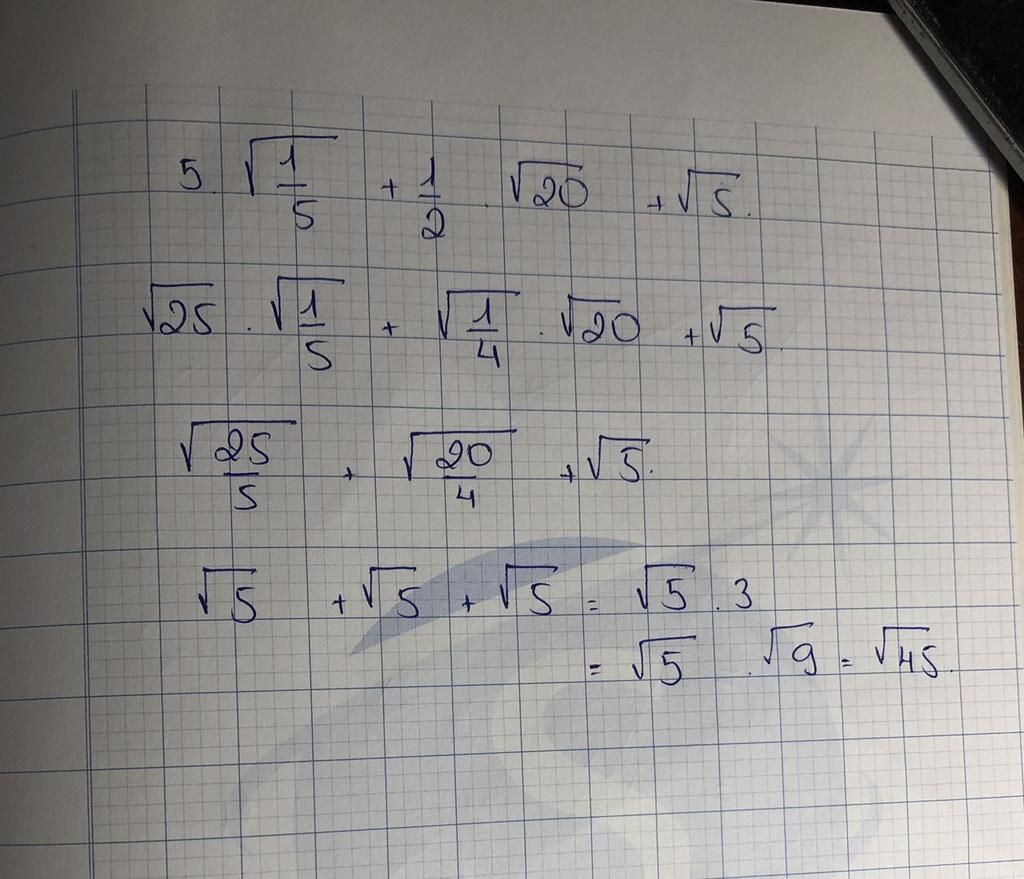 5. √(1/5) + 1/2 . √20 + √5.
√25 . √(1/5) + √(1/4) . √20 + √5.
√(25/5) + √(20/4) + √5.
√5 + √5 + √5 = √5 . 3
= √5 . √9 = √45.